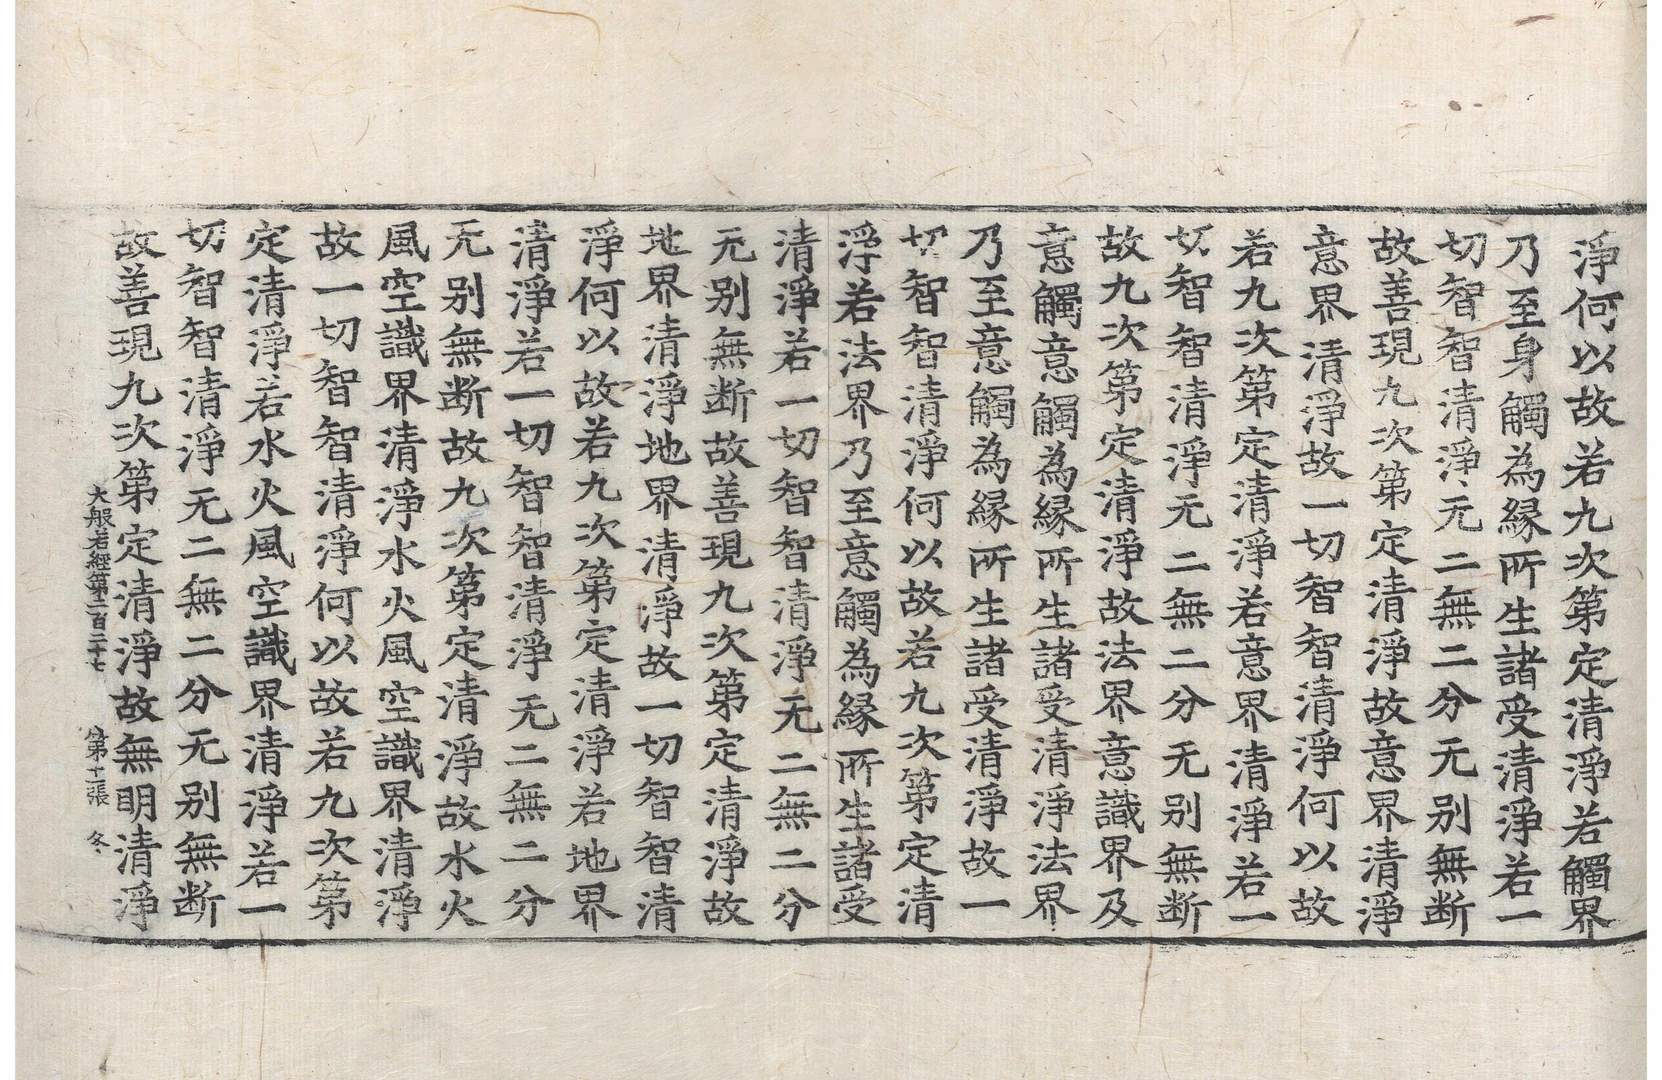 淨何以故若九次第定清淨若觸界
乃至身觸為縁所生諸受清淨若一
切智智清淨无二無二分无别無断
故善現九次第定清淨故意界清淨
意界清淨故一切智智清淨何以故
若九次第定清淨若意界清淨若一
切智智清淨无二無二分无别無断
故九次第定清淨故法界意識界及
意觸意觸為縁所生諸受清淨法界
乃至意觸為縁所生諸受清淨故一
切智智清淨何以故若九次第定清
淨若法界乃至意觸為縁所生諸受
清淨若一切智智清淨无二無二分
无别無断故善現九次第定清淨故
地界清淨地界清淨故一切智智清
淨何以故若九次第定清淨若地界
清淨若一切智智清淨无二無二分
无别無断故九次第定清淨故水火
風空識界清淨水火風空識界清淨
故一切智智清淨何以故若九次第
定清淨若水火風空識界清淨若一
切智智清淨无二無二分无别無断
故善現九次第定清淨故無明清淨
大般若經第二百二十七 第十二張 冬